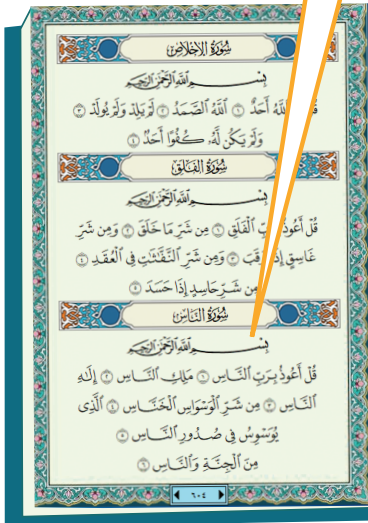 سُورَةُ الإِخْلَاصِ
بِسْمِ ٱللَّهِ ٱلرَّحْمَٰنِ ٱلرَّحِيمِ
ٱللَّهُ أَحَدٌ ١ ٱللَّهُ ٱلصَّمَدُ ٢ لَمْ يَلِدْ وَلَمْ يُولَدْ ٣
وَلَمْ يَكُن لَّهُۥ كُفُوًا أَحَدٌۢ ٤
سُورَةُ الفَلَقِ
بِسْمِ ٱللَّهِ ٱلرَّحْمَٰنِ ٱلرَّحِيمِ
قُلْ أَعُوذُ ٱلْفَلَقِ ١ مِن شَرِّ مَا خَلَقَ ٢ وَمِن شَرِّ
غَاسِقٍ ٣ وَمِن شَرِّ ٱلنَّفَّٰثَٰتِ فِى ٱلْعُقَدِ ٤
شَرِّ حَاسِدٍ إِذَا حَسَدَ ٥
سُورَةُ النَّاسِ
بِسْمِ ٱللَّهِ ٱلرَّحْمَٰنِ ٱلرَّحِيمِ
قُلْ أَعُوذُ بِرَبِّ ٱلنَّاسِ ١ مَلِكِ ٱلنَّاسِ ٢ إِلَٰهِ
ٱلنَّاسِ ٣ مِن شَرِّ ٱلْوَسْوَاسِ ٱلْخَنَّاسِ ٤ ٱلَّذِى
يُوَسْوِسُ فِى صُدُورِ ٱلنَّاسِ ٥
مِنَ ٱلْجِنَّةِ وَٱلنَّاسِ ٦
٦٠٤